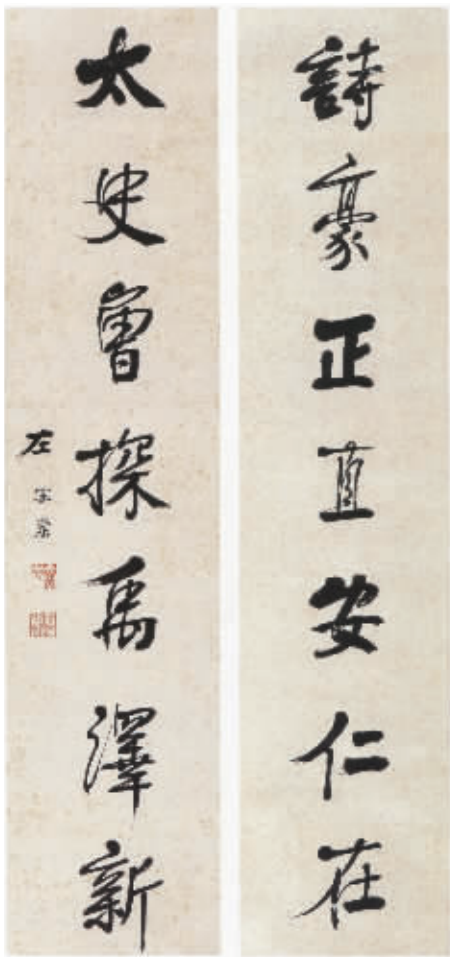 詩豪正直安仁在
太史曾探禹澤新
左宗棠